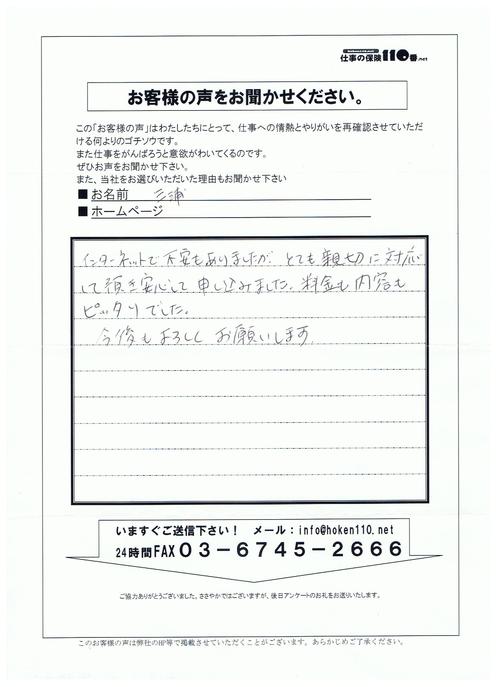 仕事の保険110番.net
お客様の声をお聞かせください。
この「お客様の声」はわたしたちにとって、仕事への情熱とやりがいを再確認させていただ
ける何よりのゴチソウです。
また仕事をがんばろうと意欲がわいてくるのです。
ぜひお声をお聞かせ下さい。
また、当社をお選びいただいた理由もお聞かせ下さい
■お名前 三浦
■ホームページ
インターネットで不安もありましたが、とても親切に対応
して頂き安心して申し込みました。料金も内容も
ピッタリでした。
今後もよろしくお願いします。
いますぐご送信下さい！ メール：info@hoken110.net
24時間FAX03－6745－2666
ご協力ありがとうございました。ささやかではございますが、後日アンケートのお礼をお送りいたします。
このお客様の声は弊社のHP等で掲載させていただくことがございます。あらかじめご了承ください。